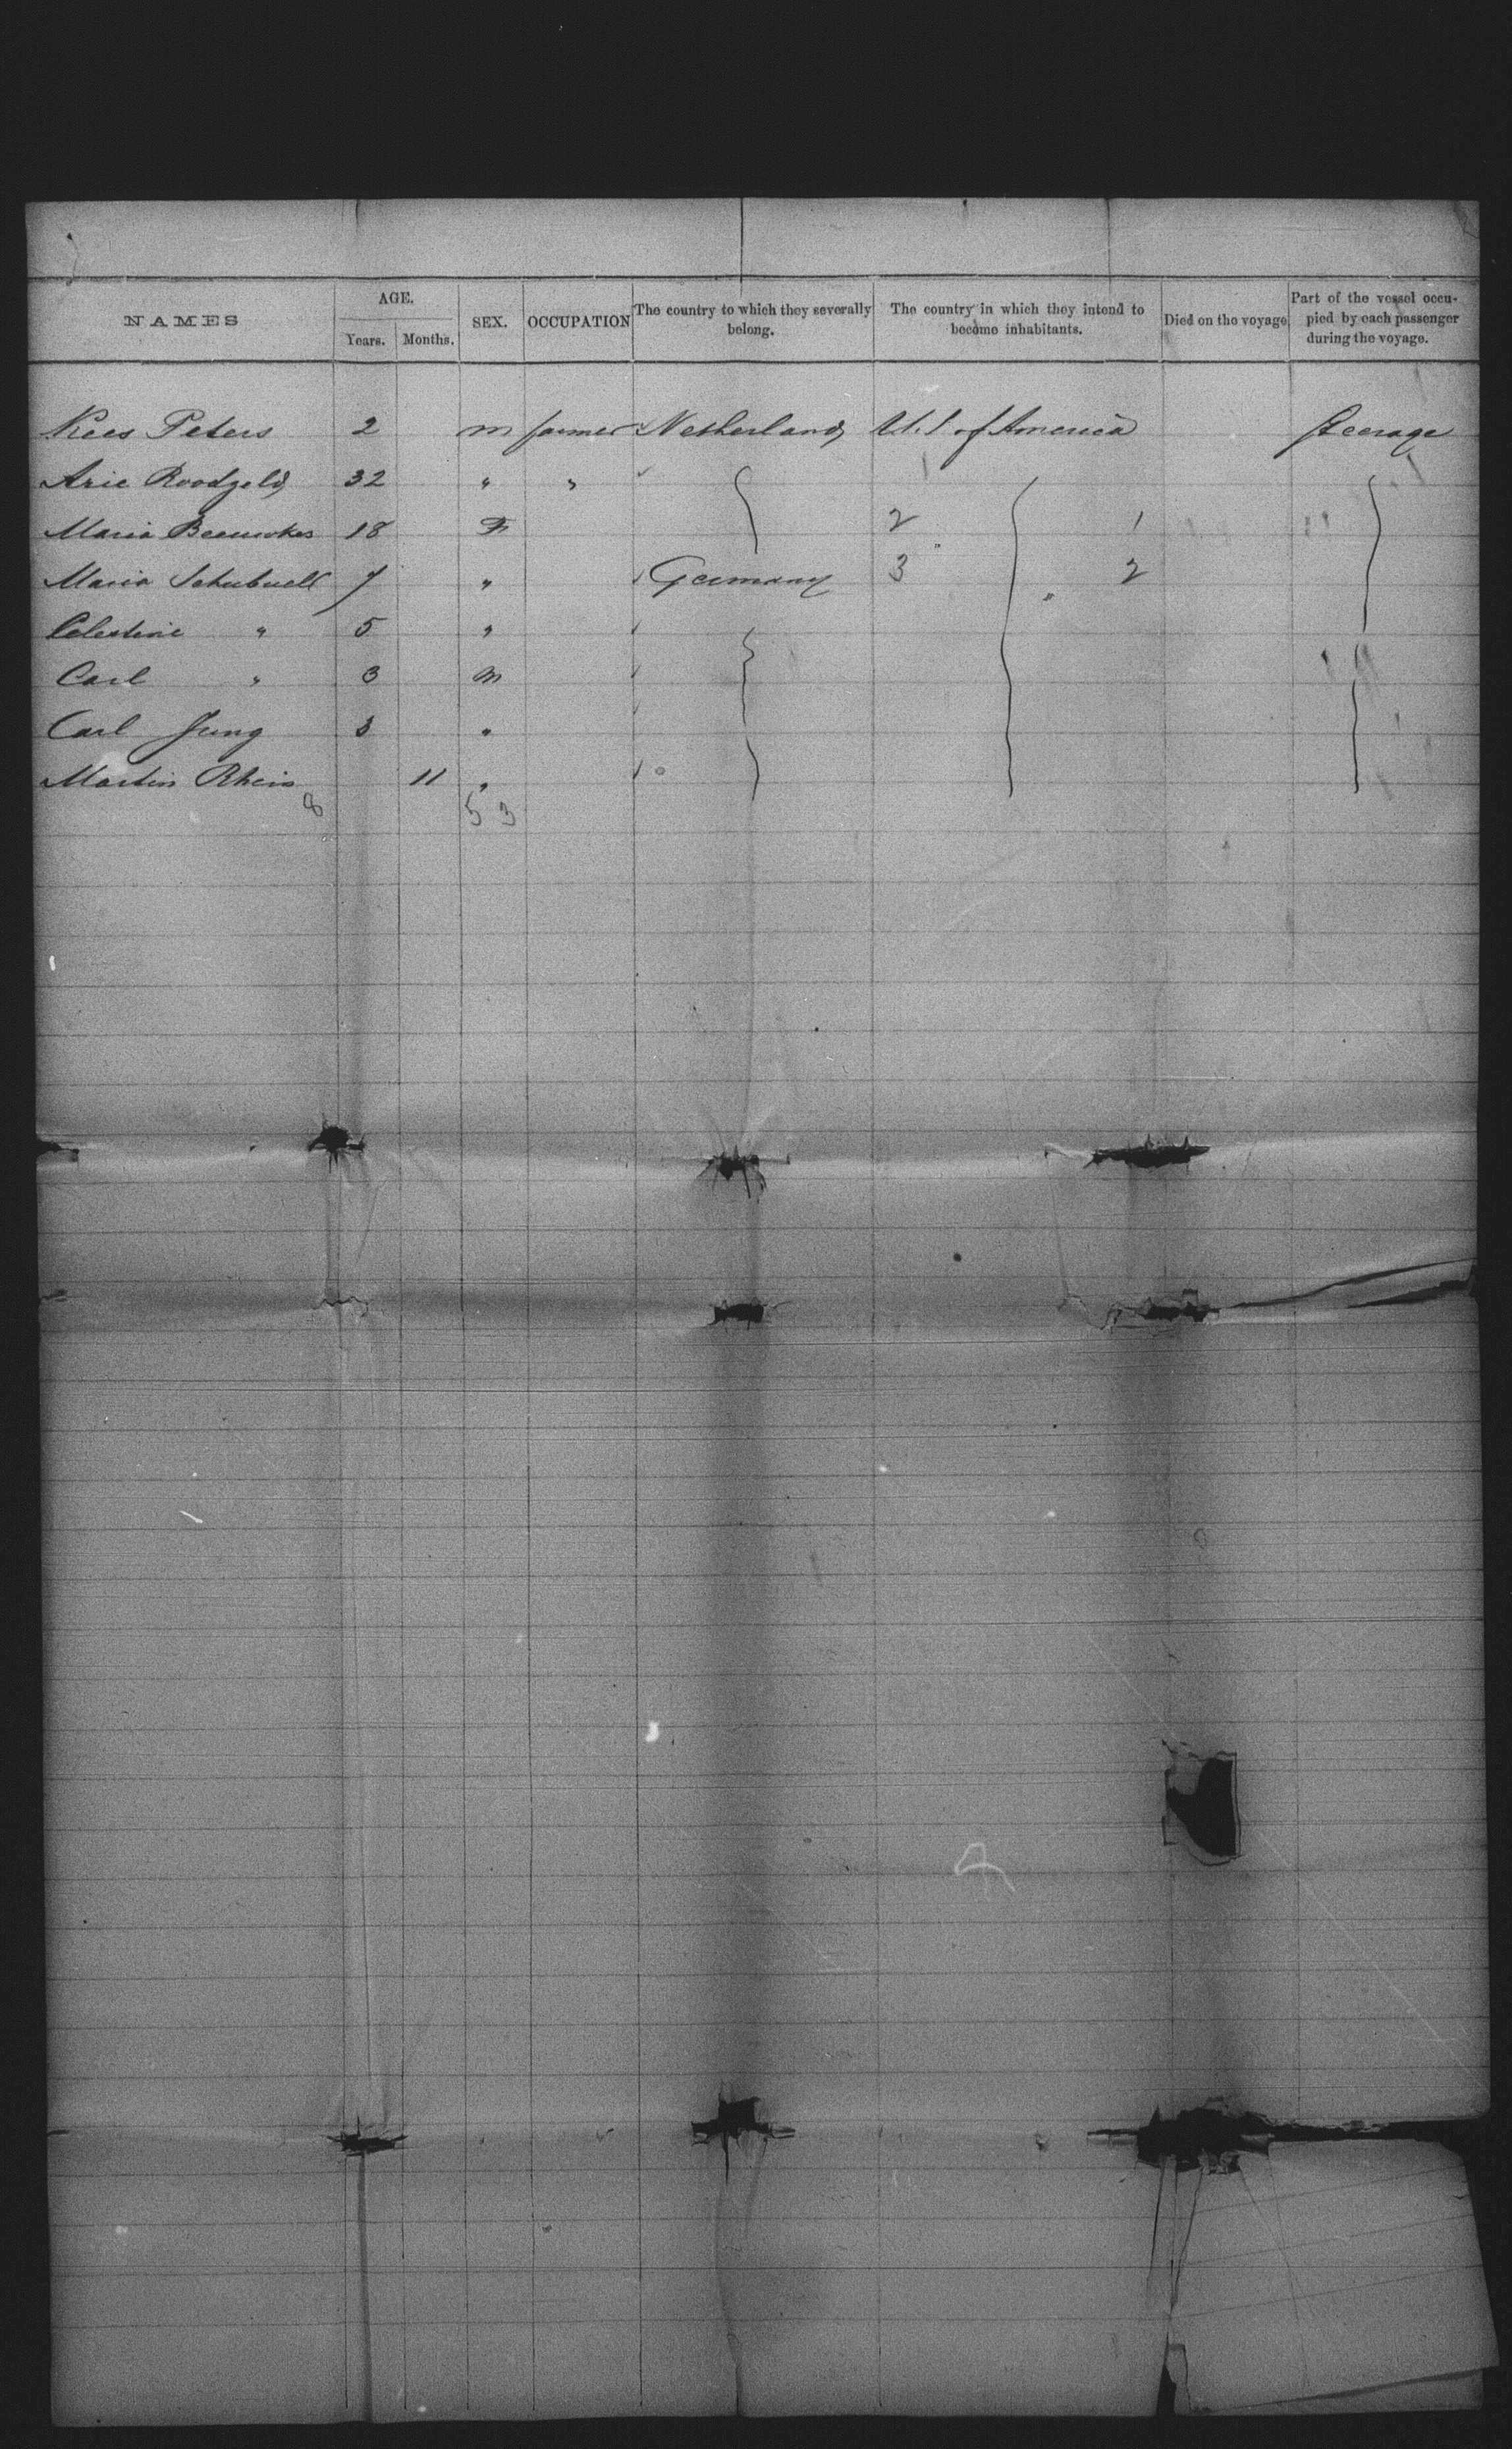 NAMES AGE. Years. Months. SEX. OCCUPATION The country to which they severally belong. The country in which they intend to become inhabitants. Died on the voyage. Part of the vessel occupied by each passenger during the voyage.
Kees Peters 2 m farmer Netherland U.S of America Steerage
Arie Roodzeld 32 " "
Maria Beeuwkes 18 F 2 1
Maria 7 " Germany 3 2
Celestine " 5 "
Carl " 3 m
Carl Jung 3 "
Martin Rhein 11 "
8 5 3